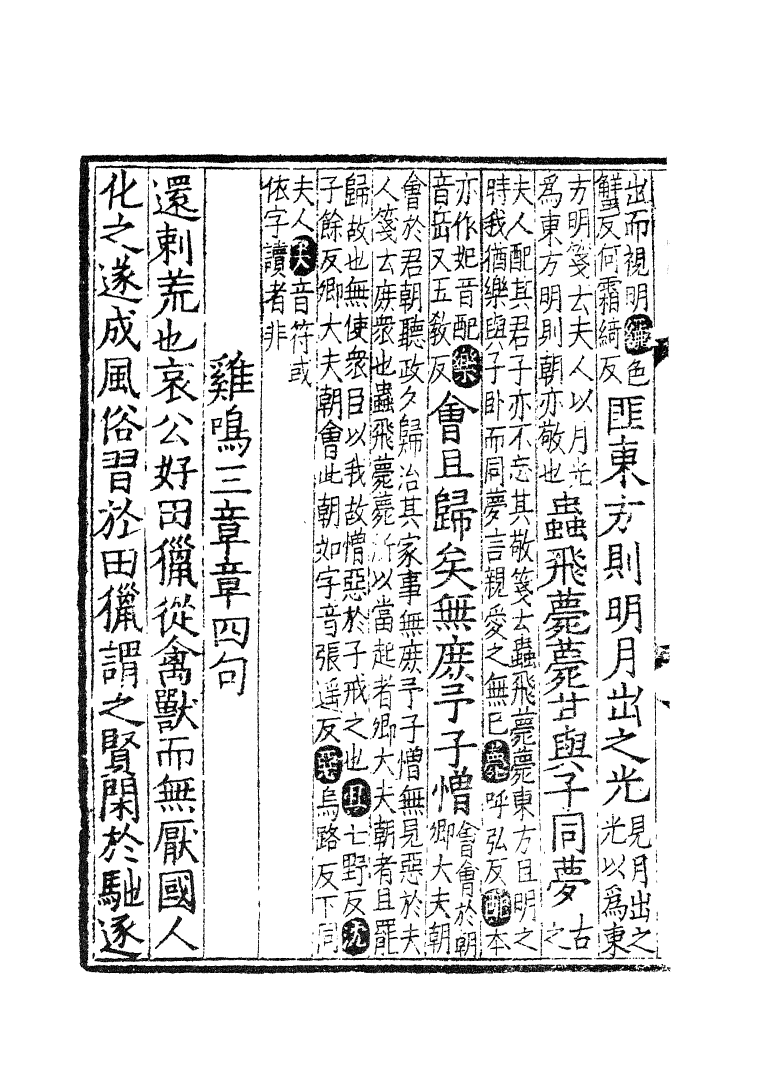 出而視明纚色
蟹反何霜綺反
匪東方則明月出之光
見月出之
光以爲東
方明箋云夫人以月光
爲東方明則朝亦敬也
蟲飛薨薨甘與子同夢
古
之
夫人配其君子亦不忘其敬箋云蟲飛薨薨東方且明之
時我猶樂與子卧而同夢言親愛之無已薨呼弘反配本
亦作妃音配樂
音岳又五敎反
會且歸矣無庶予子憎
會會於朝
卿大夫朝
會於君朝聽政夕歸治其家事無庶予子憎無見惡於夫
人箋云庶衆也蟲飛薨薨所以當起者卿大夫朝者且罷
歸故也無使衆目以我故憎惡於子戒之也且七野反沈
子餘反卿大夫朝會此朝如字音張遥反惡烏路反下同
夫人夫音符或
依字讀者非
雞鳴三章章四句
還刺荒也哀公好田獵從禽獸而無厭國人
化之遂成風俗習於田獵謂之賢閑於馳逐